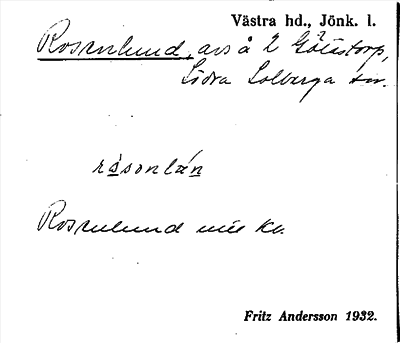 Västra hd., Jönk. l.
Rosenlund, avs å 2 Götestorp,
Södra Solberga sn.
rósonlán
Rosenlund
Fritz Andersson 1932.